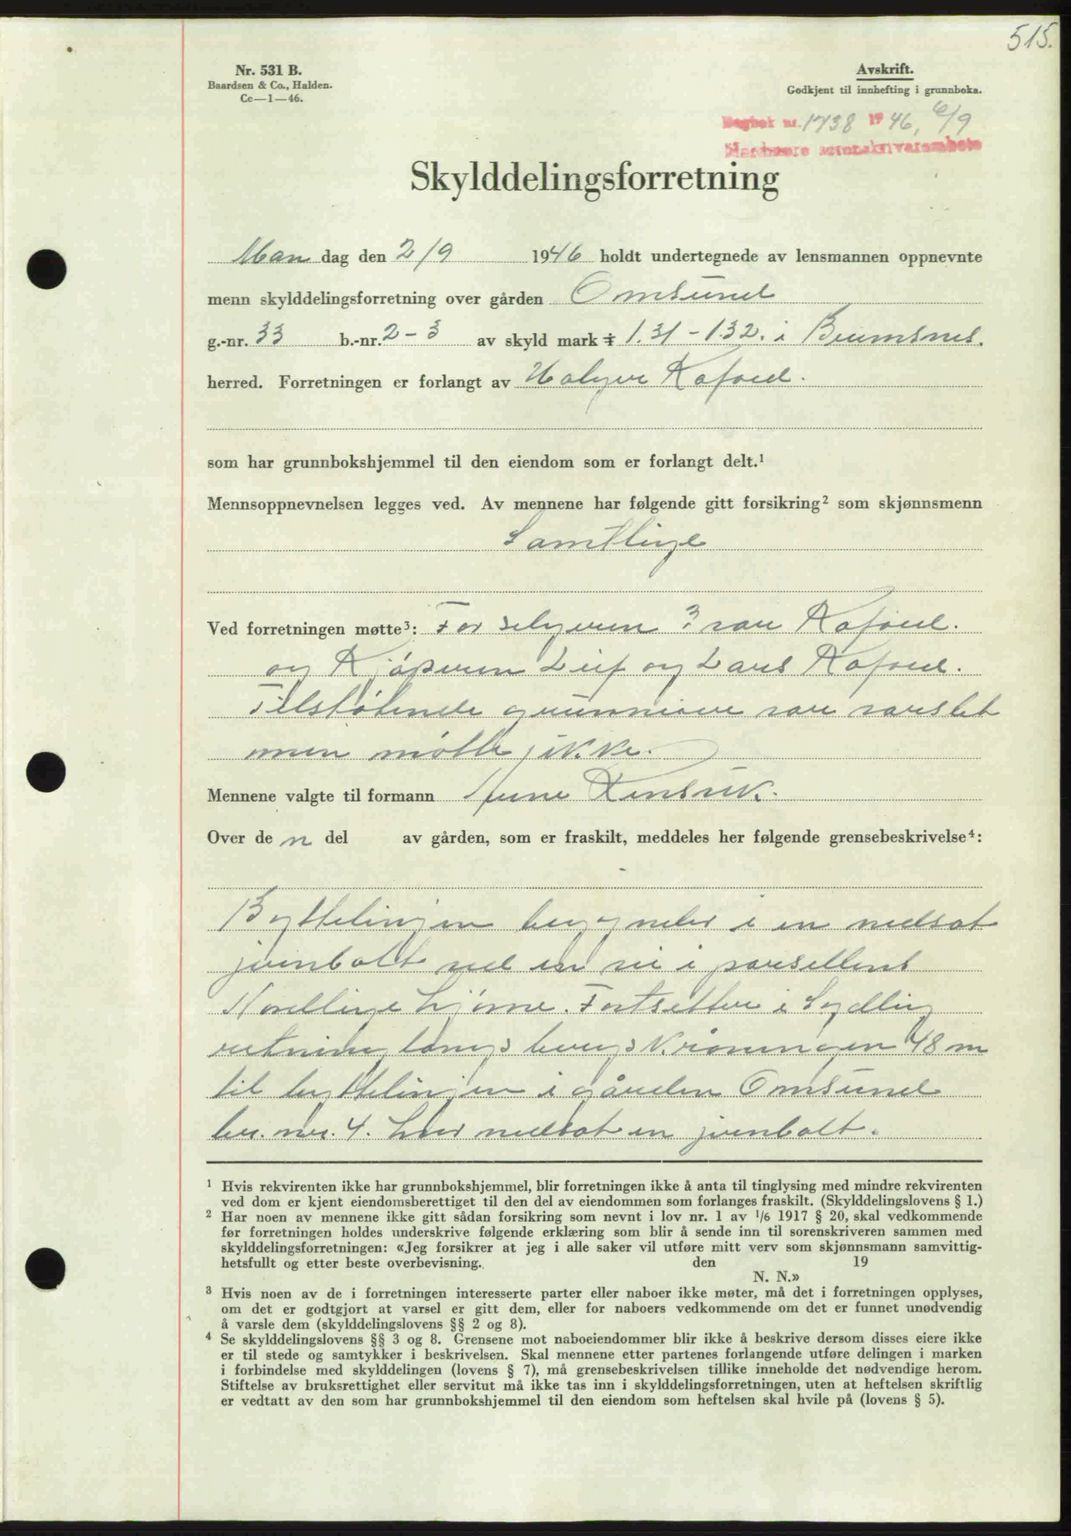 515.
Nr. 531 B.
Baardsen & Co., Halden.
Cc—1—46.
Avskrift.
Godkjent til innhefting i grunnboka.
Dagbok nr. 1738 1946, 6/9
Nordmøre sorenskriverembete
Skylddelingsforretning
Man dag den 2/9 1946 holdt undertegnede av lensmannen oppnevnte
menn skylddelingsforretning over gården Omsund
g.-nr. 33 b.-nr. 2-3 av skyld mark 1.31 - 1.32. i Bremsnes.
herred. Forretningen er forlangt av Halgeir Rafoed.
som har grunnbokshjemmel til den eiendom som er forlangt delt.¹
Mennsoppnevnelsen legges ved. Av mennene har følgende gitt forsikring² som skjønnsmenn
Samtlige
Ved forretningen møtte³: For selgeren ? var Rafoed.
og Kjøperen Leif og Lars Rafoed.
Tilstøtende grunneiere var varslet
men møtte ikke.
Mennene valgte til formann
Over de n del av gården, som er fraskilt, meddeles her følgende grensebeskrivelse⁴:
Byttelinjen begynder i en nedsat
jernbolt ved en vei i parsellens
Nordlige hjørne. Fortsetter i Sydlig
retning langs bergskråningen 48 m
til byttelinjen i gården Omsund
br. nr. 4. hvor nedsat en jernbolt.
¹ Hvis rekvirenten ikke har grunnbokshjemmel, blir forretningen ikke å anta til tinglysing med mindre rekvirenten
ved dom er kjent eiendomsberettiget til den del av eiendommen som forlanges fraskilt. (Skylddelingslovens § 1.)
² Har noen av mennene ikke gitt sådan forsikring som nevnt i lov nr. 1 av 1/6 1917 § 20, skal vedkommende
før forretningen holdes underskrive følgende erklæring som blir å sende inn til sorenskriveren sammen med
skylddelingsforretningen: «Jeg forsikrer at jeg i alle saker vil utføre mitt verv som skjønnsmann samvittig-
hetsfullt og etter beste overbevisning. den 19
N. N.»
³ Hvis noen av de i forretningen interesserte parter eller naboer ikke møter, må det i forretningen opplyses,
om det er godtgjort at varsel er gitt dem, eller for naboers vedkommende om det er funnet unødvendig
å varsle dem (skylddelingslovens §§ 2 og 8).
⁴ Se skylddelingslovens §§ 3 og 8. Grensene mot naboeiendommer blir ikke å beskrive dersom disses eiere ikke
er til stede og samtykker i beskrivelsen. Skal mennene etter partenes forlangende utføre delingen i marken
i forbindelse med skylddelingen (lovens § 7), må grensebeskrivelsen tillike inneholde det nødvendige herom.
Stiftelse av bruksrettighet eller servitut må ikke tas inn i skylddelingsforretningen, uten at heftelsen skriftlig
er vedtatt av den som har grunnbokshjemmel til den eiendom som heftelsen skal hvile på (lovens § 5).